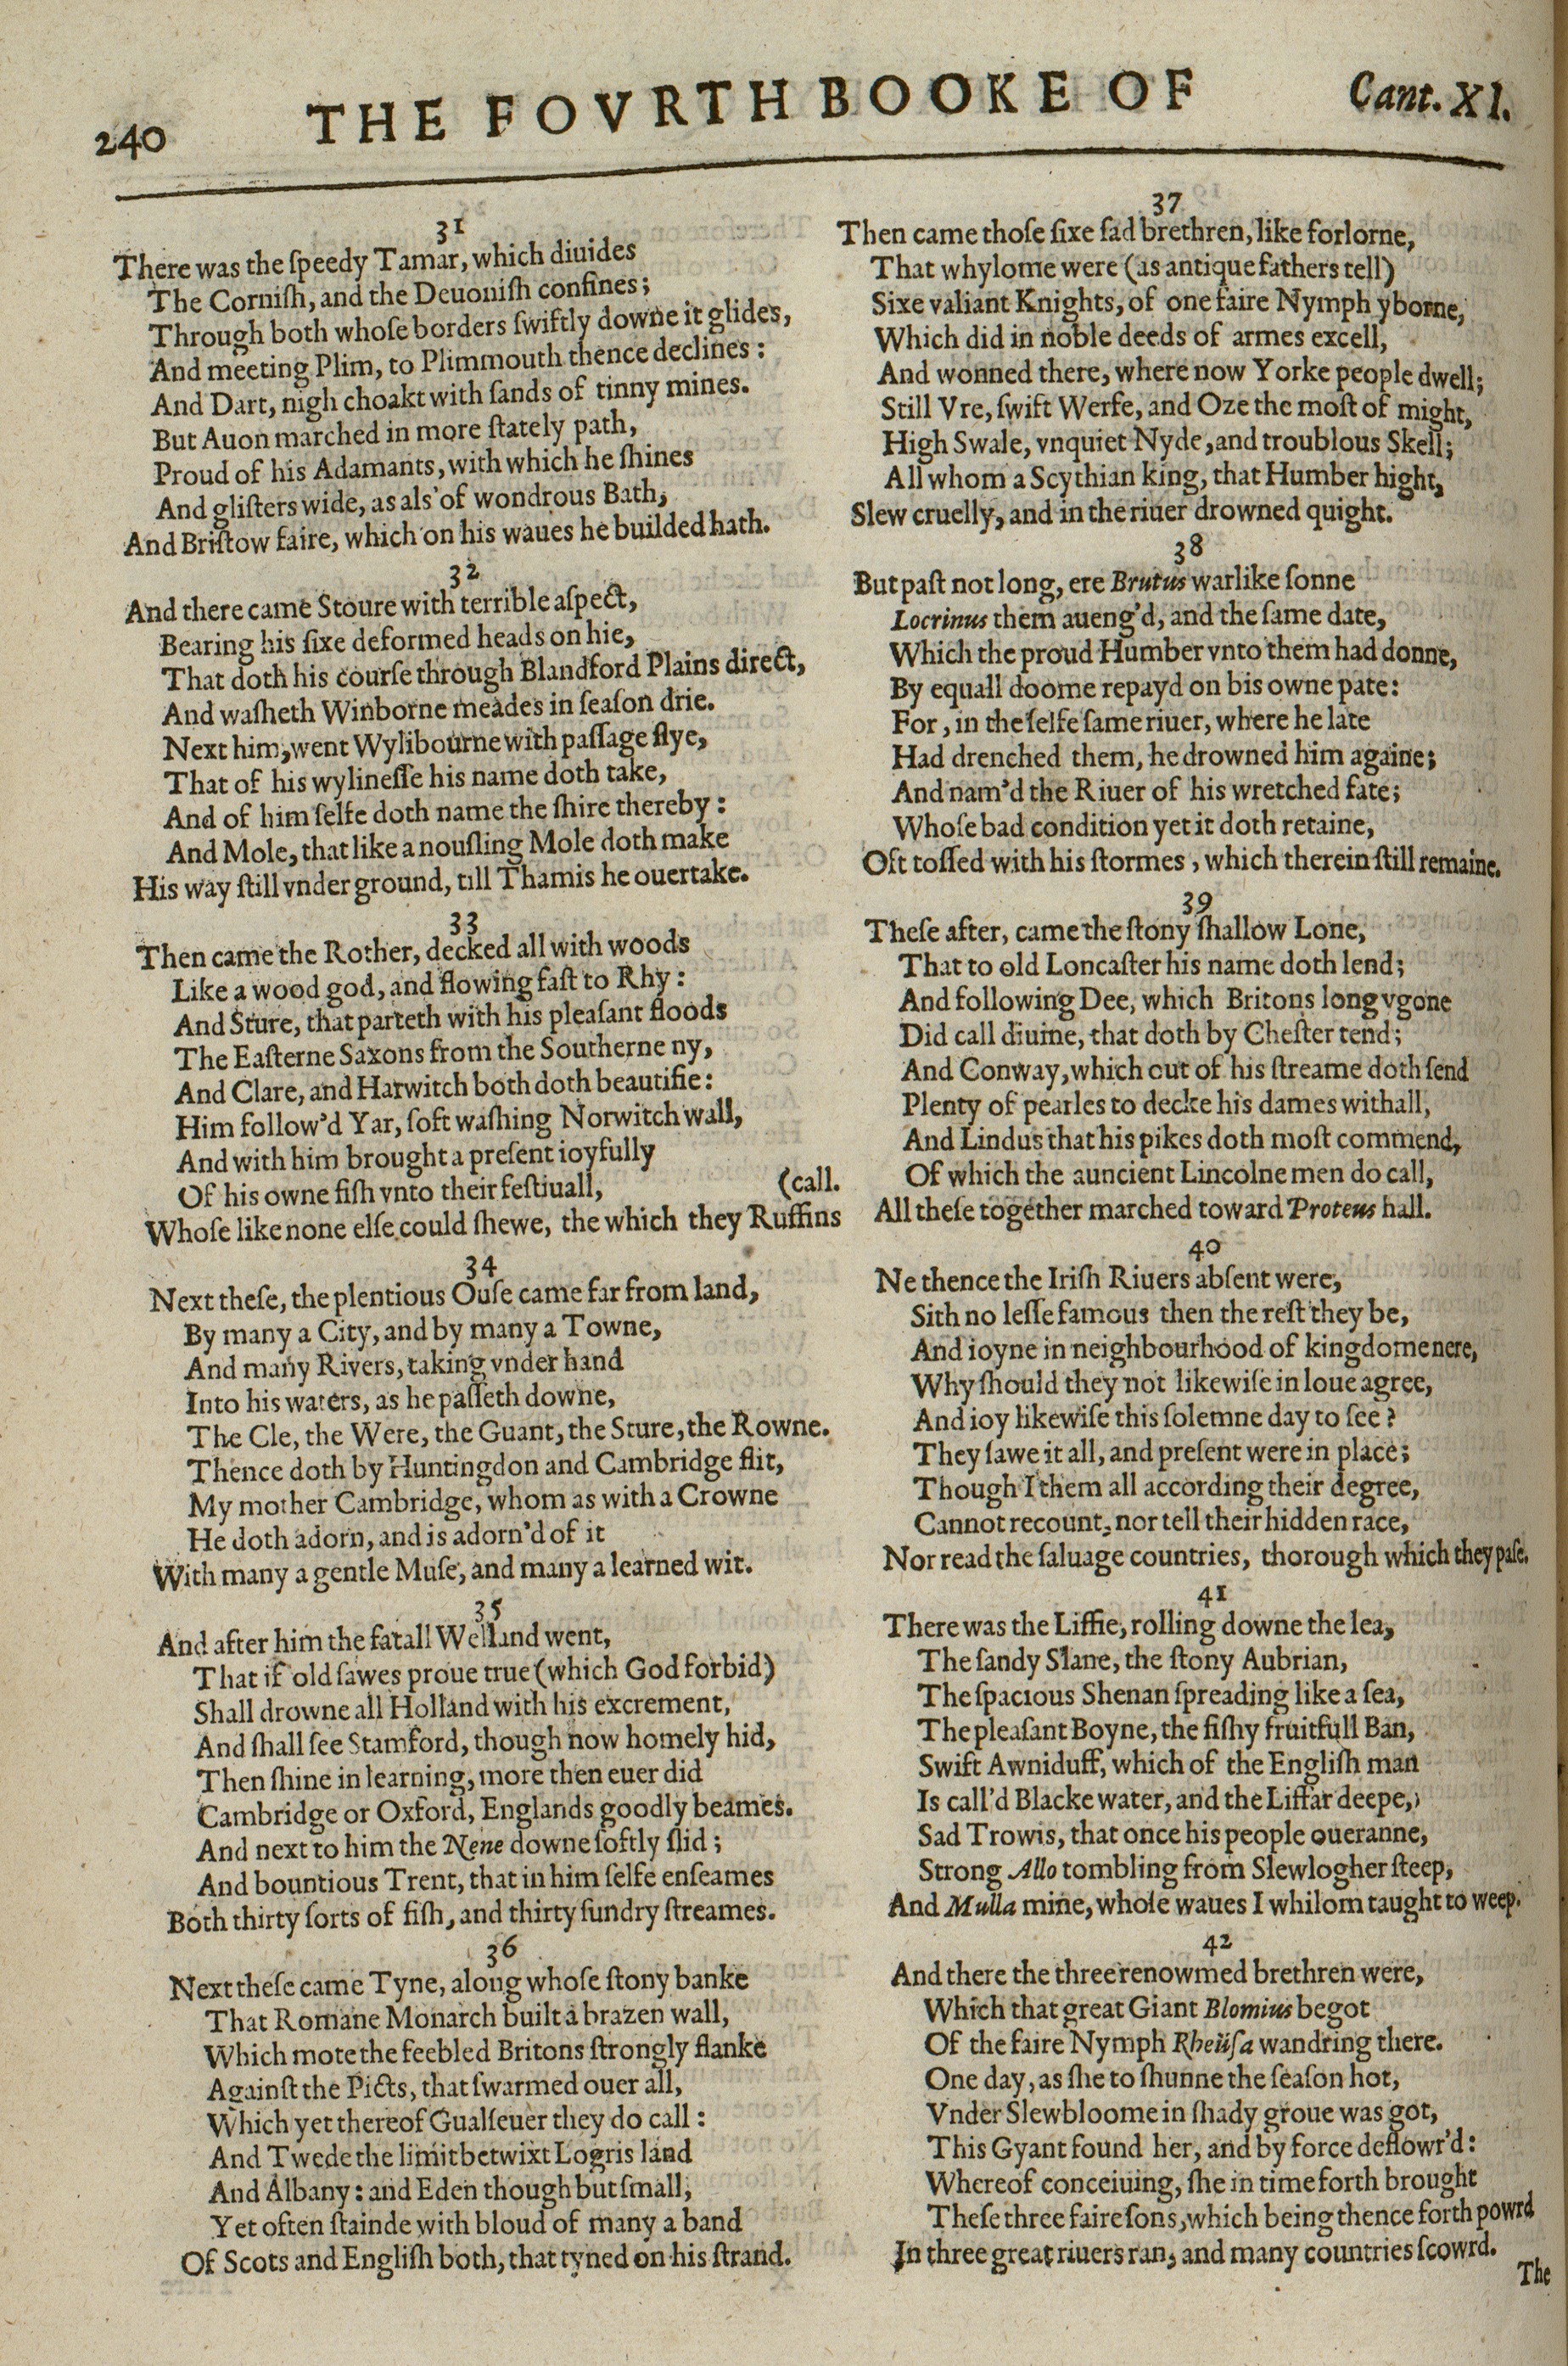 240 THE FOVRTH BOOKE OF Cant. XI.
31
There was the ſpeedy Tamar, which diuides
The Corniſh, and the Deuoniſh confines;
Through both whoſe borders ſwiftly downe it glides,
And meeting Plim, to Plimmouth thence declines:
And Dart, nigh choakt with ſands of tinny mines.
But Auon marched in more ſtately path,
Proud of his Adamants, with which he ſhines
And gliſters wide, as als' of wondrous Bath,
And Briſtow faire, which on his waues he builded hath.
32
And there came Stoure with terrible aſpect,
Bearing his ſixe deformed heads on hie,
That doth his courſe through Blandford Plains direct,
And waſheth Winborne meades in ſeaſon drie.
Next him, went Wylibourne with paſſage ſlye,
That of his wylineſſe his name doth take,
And of him ſelfe doth name the ſhire thereby:
And Mole, that like a nouſling Mole doth make
His way ſtill vnder ground, till Thamis he ouertake.
33
Then came the Rother, decked all with woods
Like a wood god, and flowing faſt to Rhy:
And Sture, that parteth with his pleaſant floods
The Eaſterne Saxons from the Southerne ny,
And Clare, and Harwitch both doth beautifie:
Him follow'd Yar, ſoft waſhing Norwitch wall,
And with him brought a preſent ioyfully
Of his owne fiſh vnto their feſtiuall, (call.
Whoſe like none elſe could ſhewe, the which they Ruffins
34
Next theſe, the plentious Ouſe came far from land,
By many a City, and by many a Towne,
And many Rivers, taking vnder hand
Into his waters, as he paſſeth downe,
The Cle, the Were, the Guant, the Sture, the Rowne.
Thence doth by Huntingdon and Cambridge flit,
My mother Cambridge, whom as with a Crowne
He doth adorn, and is adorn'd of it
With many a gentle Muſe, and many a learned wit.
35
And after him the fatall Welland went,
That if old ſawes proue true (which God forbid)
Shall drowne all Holland with his excrement,
And ſhall ſee Stamford, though now homely hid,
Then ſhine in learning, more then euer did
Cambridge or Oxford, Englands goodly beames.
And next to him the Nene downe ſoftly ſlid;
And bountious Trent, that in him ſelfe enſeames
Both thirty ſorts of fiſh, and thirty ſundry ſtreames.
36
Next theſe came Tyne, along whoſe ſtony banke
That Romane Monarch built a brazen wall,
Which mote the feebled Britons ſtrongly flanke
Againſt the Picts, that ſwarmed ouer all,
Which yet thereof Gualſeuer they do call:
And Twede the limit betwixt Logris land
And Albany: and Eden though but ſmall,
Yet often ſtainde with bloud of many a band
Of Scots and Engliſh both, that tyned on his ſtrand.
37
Then came thoſe ſixe ſad brethren, like forlorne,
That whylome were (as antique fathers tell)
Sixe valiant Knights, of one faire Nymph yborne,
Which did in noble deeds of armes excell,
And wonned there, where now Yorke people dwell;
Still Vre, ſwift Werfe, and Oze the moſt of might,
High Swale, vnquiet Nyde, and troublous Skell;
All whom a Scythian king, that Humber hight,
Slew cruelly, and in the riuer drowned quight.
38
But paſt not long, ere Brutus warlike ſonne
Locrinus them aueng'd, and the ſame date,
Which the proud Humber vnto them had donne,
By equall doome repayd on bis owne pate:
For, in the ſelfe ſame riuer, where he late
Had drenched them, he drowned him againe;
And nam'd the Riuer of his wretched fate;
Whoſe bad condition yet it doth retaine,
Oft toſſed with his ſtormes, which therein ſtill remaine.
39
Theſe after, came the ſtony ſhallow Lone,
That to old Loncaſter his name doth lend;
And following Dee, which Britons long ygone
Did call diuine, that doth by Cheſter tend;
And Conway, which out of his ſtreame doth ſend
Plenty of pearles to decke his dames withall,
And Lindus that his pikes doth moſt commend,
Of which the auncient Lincolne men do call,
All theſe together marched toward Proteus hall.
40
Ne thence the Iriſh Riuers abſent were,
Sith no leſſe famous then the reſt they be,
And ioyne in neighbourhood of kingdome nere,
Why ſhould they not likewiſe in loue agree,
And ioy likewiſe this ſolemne day to ſee?
They ſawe it all, and preſent were in place;
Though I them all according their degree,
Cannot recount, nor tell their hidden race,
Nor read the ſaluage countries, thorough which they paſe.
41
There was the Liffie, rolling downe the lea,
The ſandy Slane, the ſtony Aubrian,
The ſpacious Shenan ſpreading like a ſea,
The pleaſant Boyne, the fiſhy fruitfull Ban,
Swift Awniduff, which of the Engliſh man
Is call'd Blacke water, and the Liffar deepe,
Sad Trowis, that once his people oueranne,
Strong Allo tombling from Slewlogher ſteep,
And Mulla mine, whoſe waues I whilom taught to weep.
42
And there the three renowmed brethren were,
Which that great Giant Blomius begot
Of the faire Nymph Rheüſa wandring there.
One day, as ſhe to ſhunne the ſeaſon hot,
Vnder Slewbloome in ſhady groue was got,
This Gyant found her, and by force deflowr'd:
Whereof conceiuing, ſhe in time forth brought
Theſe three faire ſons, which being thence forth powrd
In three great riuers ran, and many countries ſcowrd.
The